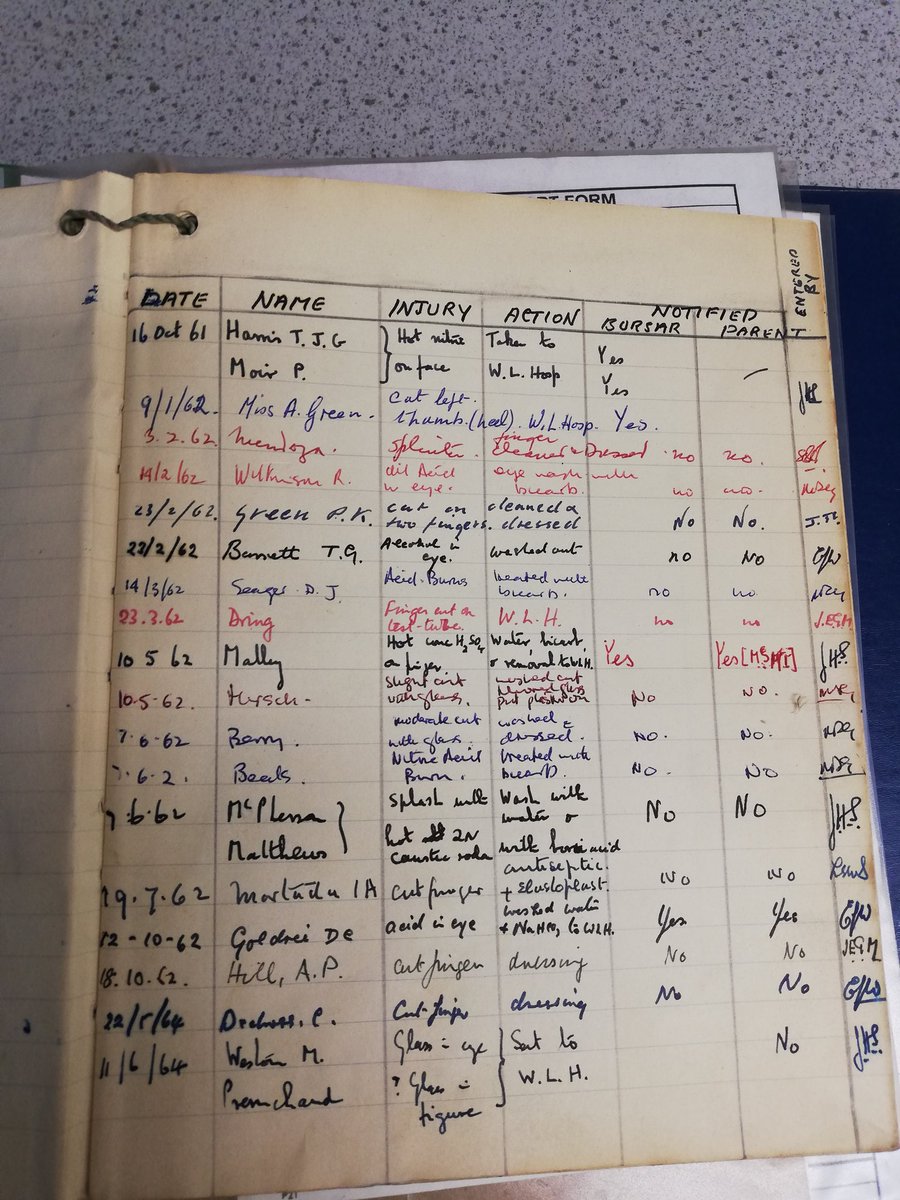 FORM
DATE NAME INJURY ACTION NOTIFIED ENTERED BY
BURSAR PARENT
16 Oct 61 Harris T. J. G Hot nitre Taken to Yes
Moir P. on face W.L. Hosp Yes JHS
9/1/62. Miss A. Green. cut left
thumb. (heel). W.L. Hosp. Yes.
3.2.62. Mendoza. splinter. finger
cleaned & Dressed no no.
14/2/62 Wilkinson R. dil Acid eye wash with
in eye. bicarb. no no.
23/2/62. Green P.K. cut on cleaned &
two fingers. dressed No No.
22/2/62 Barnett T.G. Alcohol in washed out
eye. no No
14/3/62 Seager D. J. Acid Burns treated with
bicarb. no no.
23.3.62 Dring Finger cut on W.L.H. no no J.E.G.M
test-tube.
10 5 62 Malley Hot conc H2SO4 Water, bicarb,
on finger. & removal to W.L.H. Yes Yes JHS
10.5.62. Hirsch - slight cut washed out
with glass removed glass
put plaster on No No.
7.6.62 Berry. moderate cut washed &
with glass. dressed. No. No.
7.6.2. Beals. Nitric Acid treated with
Burn. bicarb. No. No
7.6.62 McPherson splash with Wash with No No JHS
Matthews hot 2N water &
caustic soda with boric acid
19.7.62 Mortada IA cut finger antiseptic.
+ Elastoplast. No No
12-10-62 Goldrei De acid in eye washed water
+ NaHCO3 to W.L.H. Yes Yes
18.10.62. Hill, A.P. cut finger dressing No No J.E.G.M
22/5/64 C. Cut finger dressing No No
11/6/64 Weston M. Glass in eye Sent to No JHS
Premchand ? Glass in W.L.H.
figure